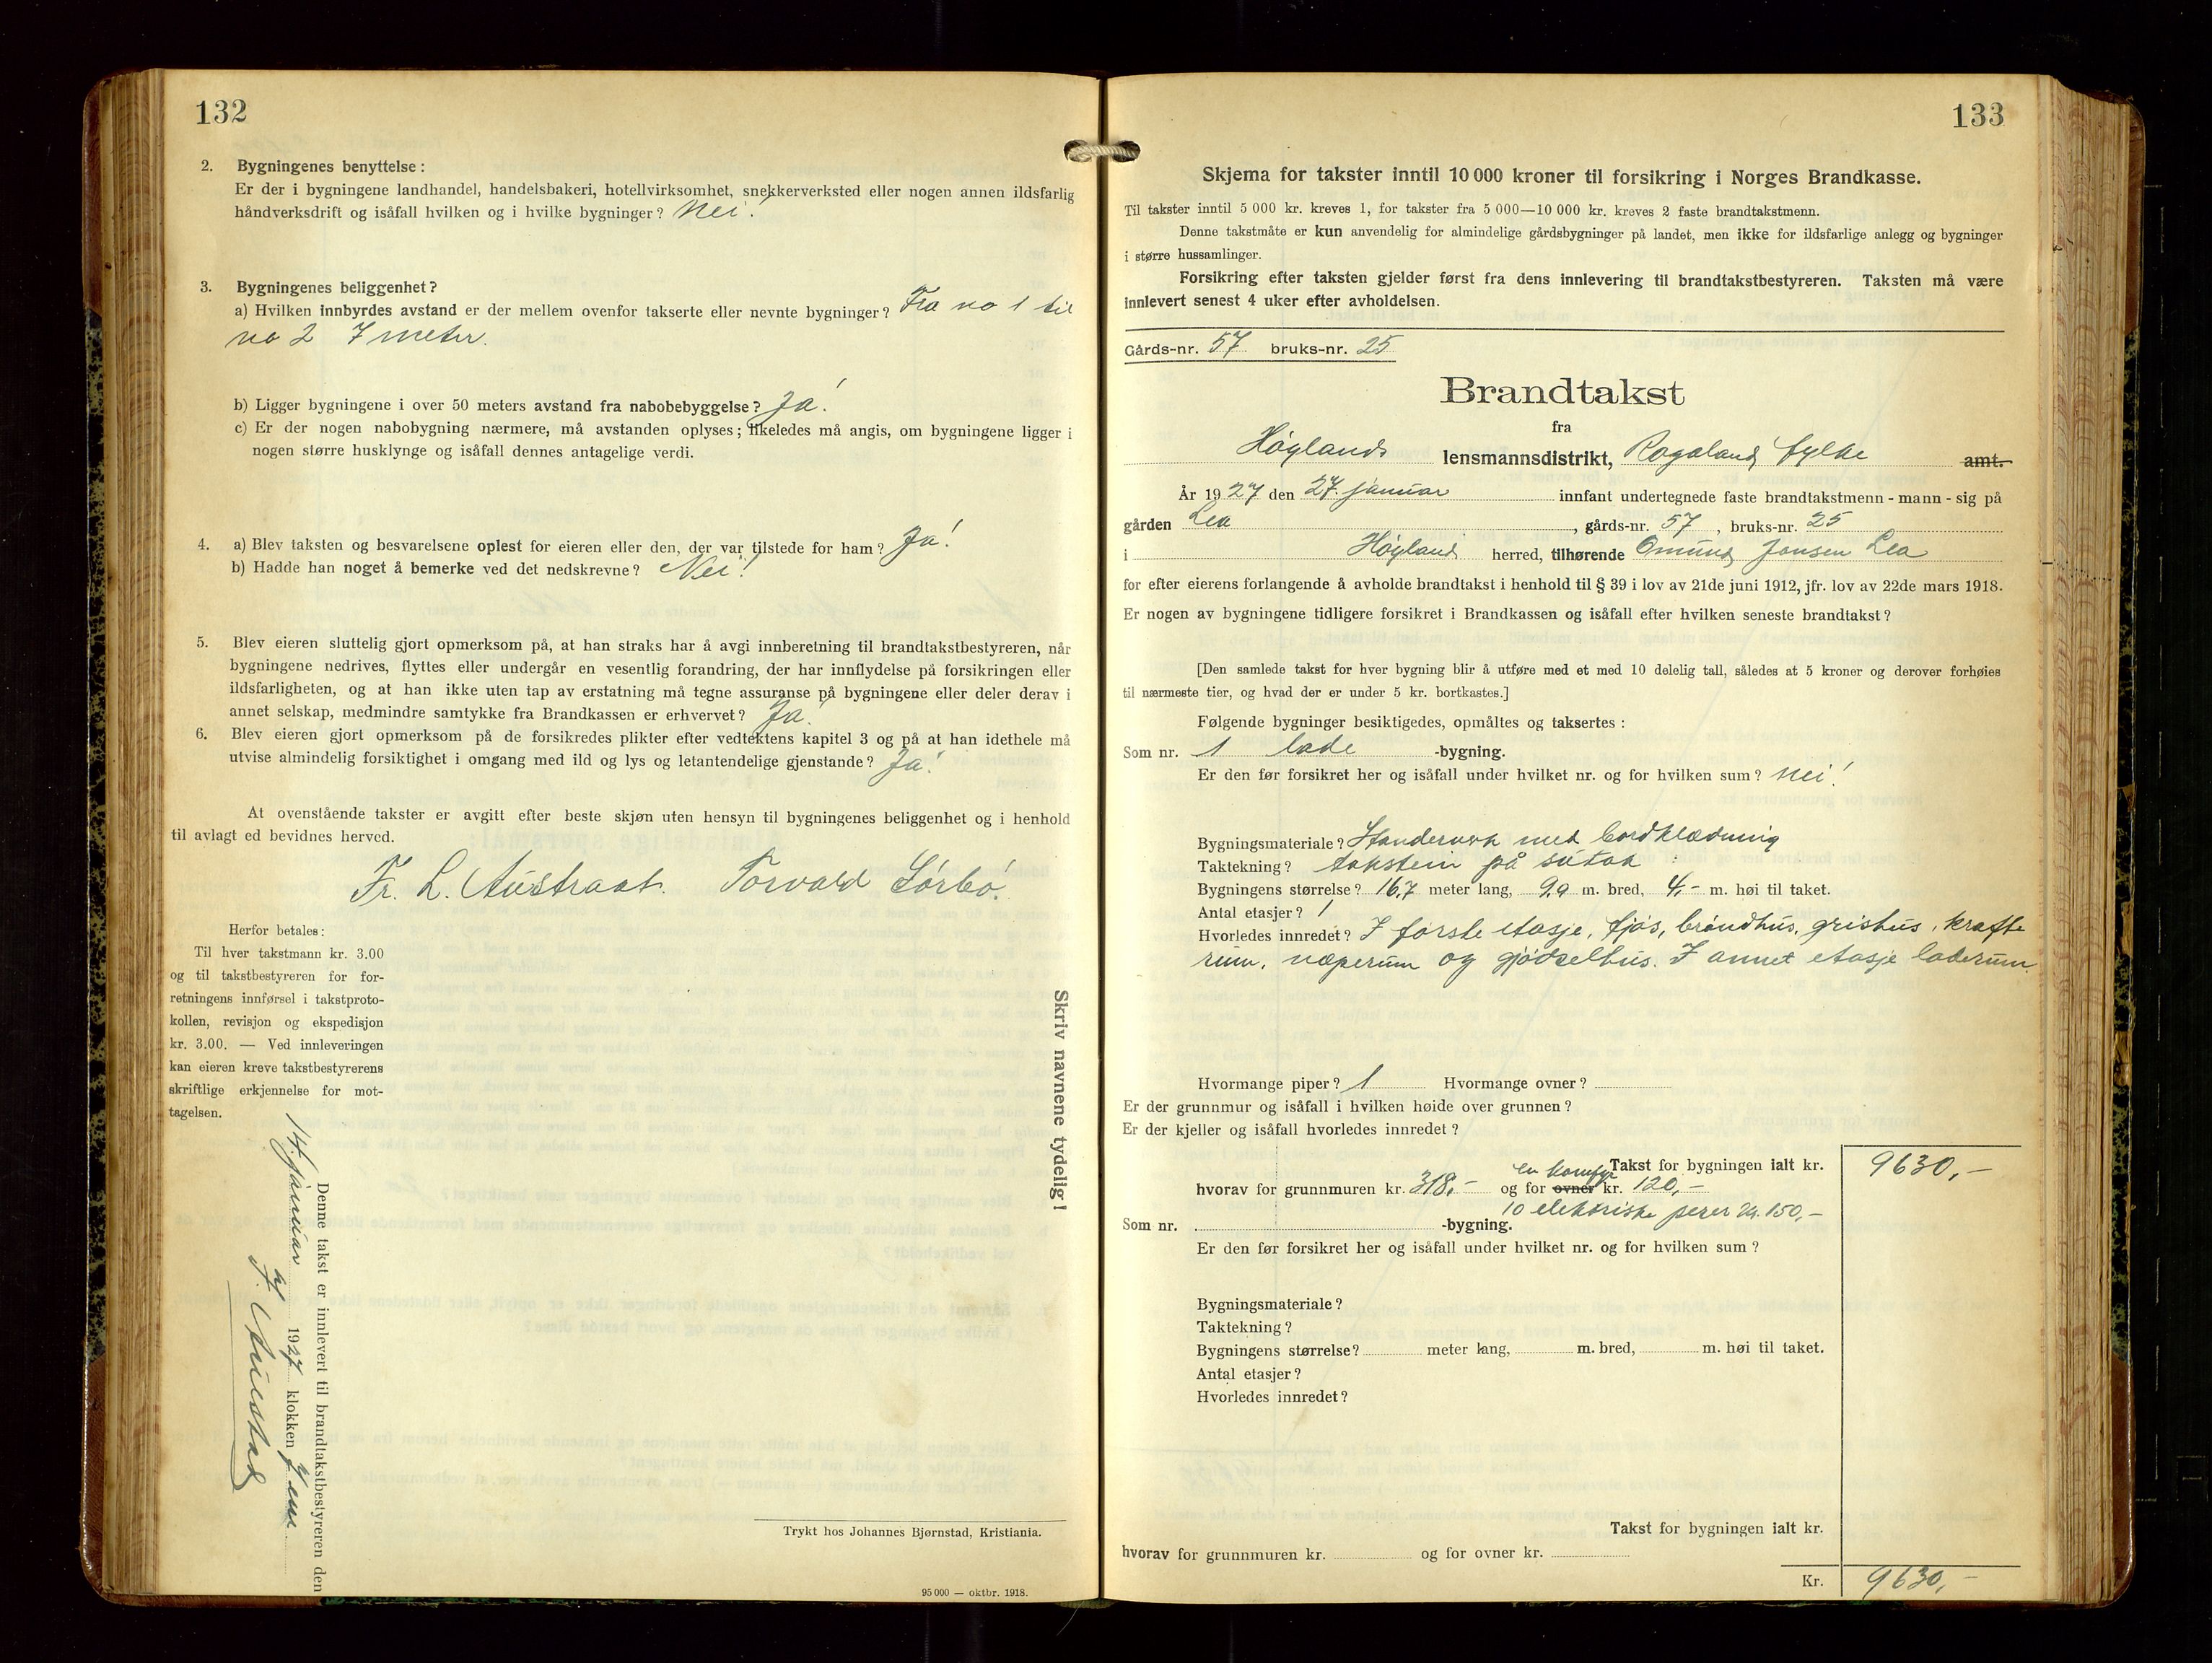 132
2. Bygningenes benyttelse:
Er der i bygningene landhandel, handelsbakeri, hotellvirksomhet, snekkerverksted eller nogen annen ildsfarlig
håndverksdrift og isåfall hvilken og i hvilke bygninger? Nei!
3. Bygningenes beliggenhet?
a) Hvilken innbyrdes avstand er der mellem ovenfor takserte eller nevnte bygninger? Fra no 1 til
no 2 7 meter.
b) Ligger bygningene i over 50 meters avstand fra nabobebyggelse? Ja!
c) Er der nogen nabobygning nærmere, må avstanden oplyses; likeledes må angis, om bygningene ligger i
nogen større husklynge og isåfall dennes antagelige verdi.
4. a) Blev taksten og besvarelsene oplest for eieren eller den, der var tilstede for ham? Ja!
b) Hadde han noget å bemerke ved det nedskrevne? Nei!
5. Blev eieren sluttelig gjort opmerksom på, at han straks har å avgi innberetning til brandtakstbestyreren, når
bygningene nedrives, flyttes eller undergår en vesentlig forandring, der har innflydelse på forsikringen eller
ildsfarligheten, og at han ikke uten tap av erstatning må tegne assuranse på bygningene eller deler derav i
annet selskap, medmindre samtykke fra Brandkassen er erhvervet? Ja!
6. Blev eieren gjort opmerksom på de forsikredes plikter efter vedtektens kapitel 3 og på at han idethele må
utvise almindelig forsiktighet i omgang med ild og lys og letantendelige gjenstande? Ja!
At ovenstående takster er avgitt efter beste skjøn uten hensyn til bygningenes beliggenhet og i henhold
til avlagt ed bevidnes herved.
Fr. L. Austraat. Torvald Sörbö.
Herfor betales:
Til hver takstmann kr. 3.00
og til takstbestyreren for for-
retningens innførsel i takstproto-
kollen, revisjon og ekspedisjon
kr. 3.00. — Ved innleveringen
kan eieren kreve takstbestyrerens
skriftlige erkjennelse for mot-
tagelsen.
Denne takst er innlevert til brandtakstbestyreren den
14. januar 1927 klokken 7 em
Skriv navnene tydelig!
Trykt hos Johannes Bjørnstad, Kristiania.
95 000 — oktbr. 1918.
133
Skjema for takster inntil 10 000 kroner til forsikring i Norges Brandkasse.
Til takster inntil 5 000 kr. kreves 1, for takster fra 5 000—10 000 kr. kreves 2 faste brandtakstmenn.
Denne takstmåte er kun anvendelig for almindelige gårdsbygninger på landet, men ikke for ildsfarlige anlegg og bygninger
i større hussamlinger.
Forsikring efter taksten gjelder først fra dens innlevering til brandtakstbestyreren. Taksten må være
innlevert senest 4 uker efter avholdelsen.
Gårds-nr. 57 bruks-nr. 25
Brandtakst
fra
Höylands lensmannsdistrikt, Rogaland fylke amt.
År 1927 den 27. januar innfant undertegnede faste brandtakstmenn - mann - sig på
gården Lea, gårds-nr. 57, bruks-nr. 25
i Höyland herred, tilhørende Omund Jonsen Lea
for efter eierens forlangende å avholde brandtakst i henhold til § 39 i lov av 21de juni 1912, jfr. lov av 22de mars 1918.
Er nogen av bygningene tidligere forsikret i Brandkassen og isåfall efter hvilken seneste brandtakst?
[Den samlede takst for hver bygning blir å utføre med et med 10 delelig tall, således at 5 kroner og derover forhøies
til nærmeste tier, og hvad der er under 5 kr. bortkastes.]
Følgende bygninger besiktigedes, opmåltes og taksertes:
Som nr. 1 lade -bygning.
Er den før forsikret her og isåfall under hvilket nr. og for hvilken sum? Nei!
Bygningsmateriale? Standerverk med bordklædning
Taktekning? takstein på sutak
Bygningens størrelse? 16,7 meter lang, 9,9 m. bred, 4,- m. høi til taket.
Antal etasjer? 1
Hvorledes innredet? I förste etasje, fjös, bröndhus, grishus, krafto
rum, næperum og gjödselhus. I annet etasje laderum.
Hvormange piper? 1 Hvormange ovner?
Er der grunnmur og isåfall i hvilken høide over grunnen?
Er der kjeller og isåfall hvorledes innredet?
Takst for bygningen ialt kr. 9630,-
hvorav for grunnmuren kr. 318,- og for ovner en komfyr kr. 120,-
10 elektriske perer kr. 150,-
Som nr. -bygning.
Er den før forsikret her og isåfall under hvilket nr. og for hvilken sum?
Bygningsmateriale?
Taktekning?
Bygningens størrelse? meter lang, m. bred, m. høi til taket.
Antal etasjer?
Hvorledes innredet?
Takst for bygningen ialt kr.
hvorav for grunnmuren kr. og for ovner kr.
Kr. 9630,-